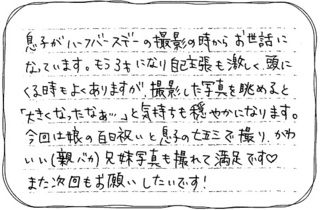 息子がハーフバースデーの撮影の時からお世話に
なっています。もう3才になり自己主張も激しく、頭に
くる時もよくありますが、撮影した写真を眺めると
「大きくなったなぁ…」と気持ちも穏やかになります。
今回は娘の百日祝いと息子の七五三で撮り、かわ
いい(親バカ)兄妹写真も撮れて満足です♡
また次回もお願いしたいです!